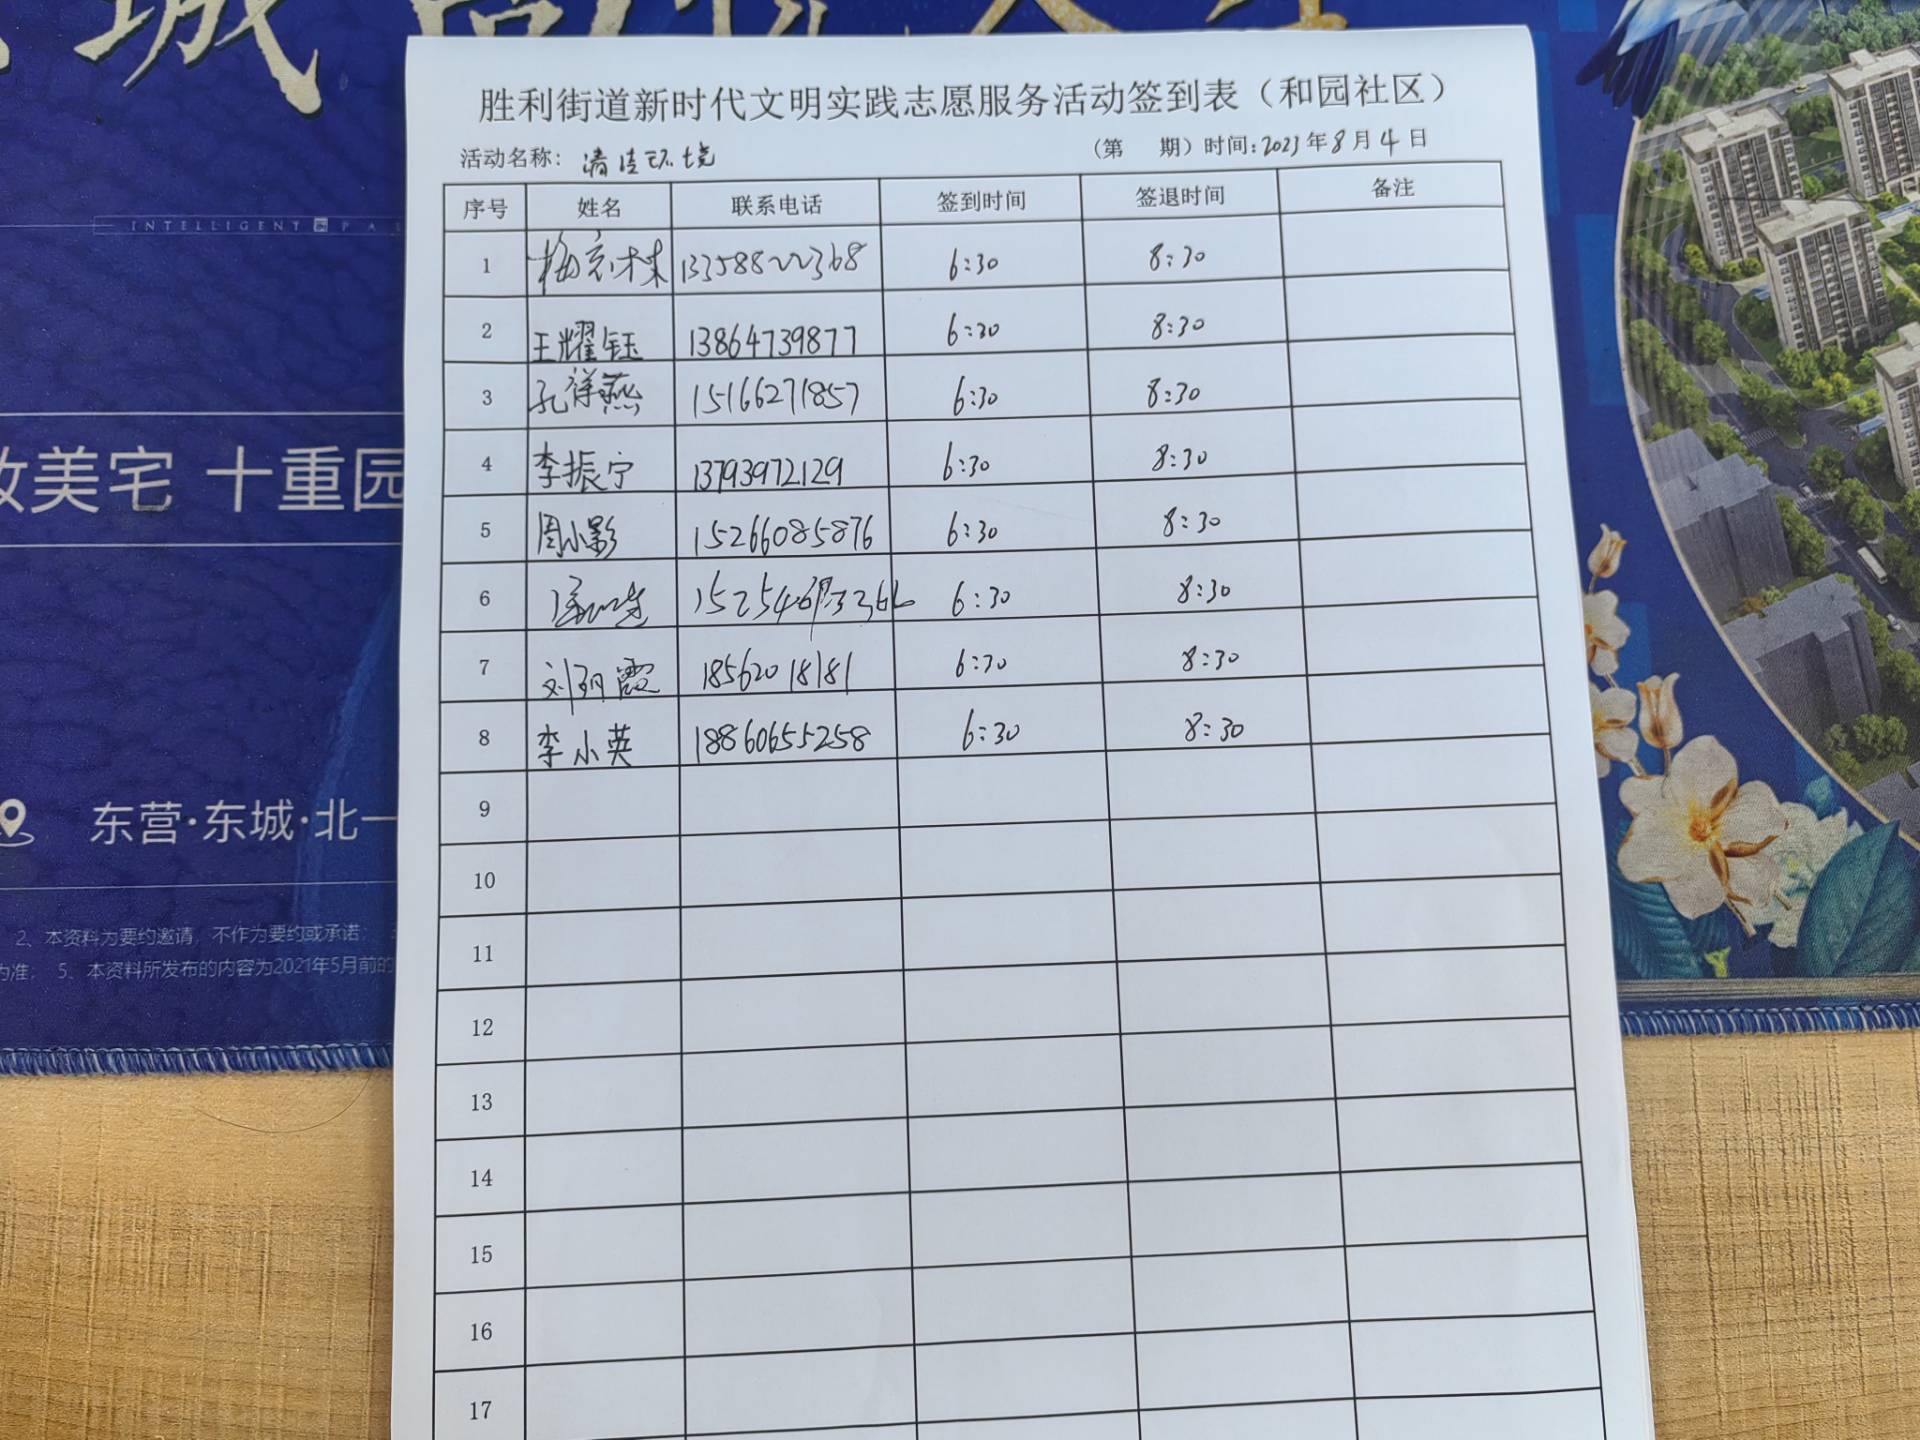 城
INTELLIGENT
改美宅 十重园
东营·东城·北一
2、本资料为要约邀请，不作为要约或承诺；
为准； 5、本资料所发布的内容为2021年5月前的
胜利街道新时代文明实践志愿服务活动签到表（和园社区）
活动名称：清洁环境 （第 期）时间：2023年8月4日
序号 姓名 联系电话 签到时间 签退时间 备注
1 13358822368 6:30 8:30
2 王耀钰 13864739877 6:30 8:30
3 孔祥燕 15166271857 6:30 8:30
4 李振宁 13793972129 6:30 8:30
5 周小影 15266085876 6:30 8:30
6 6:30 8:30
7 刘丽霞 18562018181 6:30 8:30
8 李小英 18860655258 6:30 8:30
9
10
11
12
13
14
15
16
17